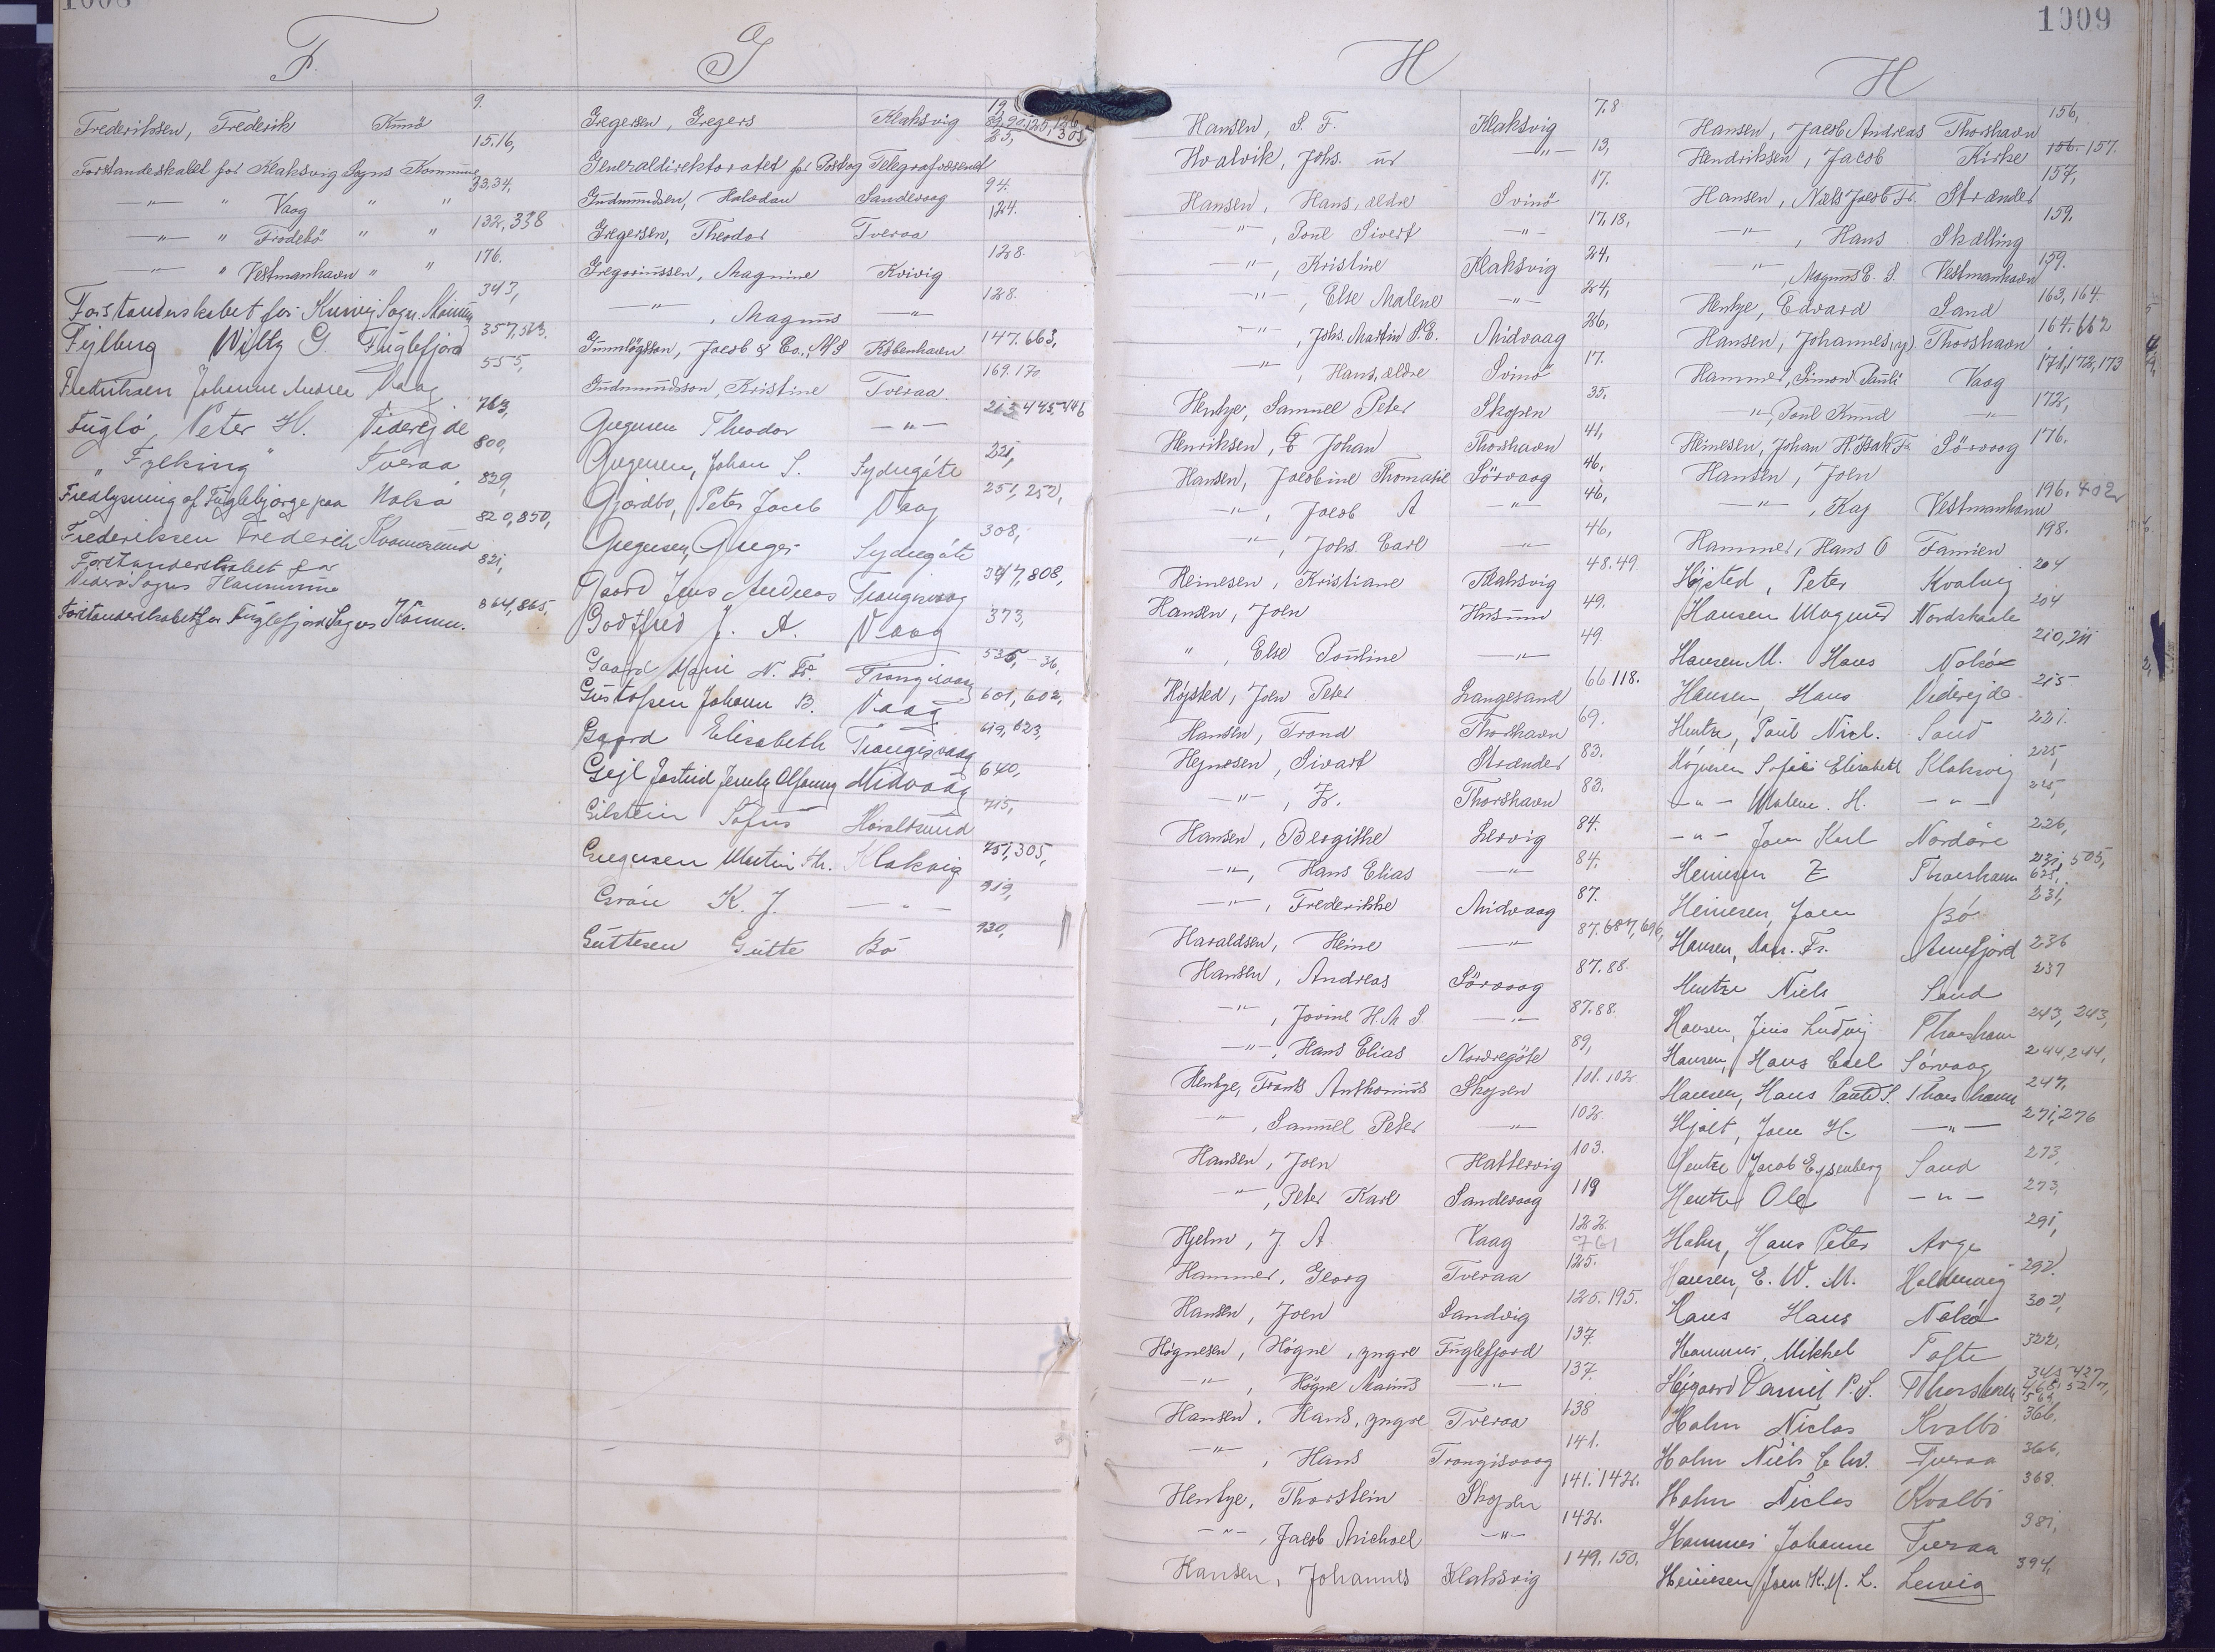 1008
F.
Frederiksen, Frederik Kunö 9.
Forstanderskabet for Klaksvig Sogns Kommune 15.16,
—"— " Vaag " " 33.34,
—"— " Frodebö " " 132, 338
—"— " Vestmanhavn " " 176.
Forstanderskabet for Kvivig Sogns Komm 343,
Fylberg Willy G. Fuglefjord 357,
Fredriksen Johanne Andrea Vaag 555,
Fugló, Peter H. Viderejde 763,
" Fylking " Tveraa 800,
Fredlysning af Fuglebjerge paa Nolsó 829,
Frederiksen Frederik Kvannesund 820, 850,
Forstanderskabet for
Viderö Sogns Kommune 821,
Forstanderskabet for Fuglefjord Sogns Komm. 864, 865,
G
Gregersen, Gregers Klaksvig 19,
Generaldirektoratet for Post og Telegrafvæsenet 25,
Gudmundsen, Halvdan Sandevaag 94.
Gregersen, Theodor Tveraa 124.
Gregoriussen, Magnine Kvivig 128.
—"—, Magnus —"— 128.
Gunnlögsson, Jacob & Co., A/S København 147. 663,
Gudmundsson, Kristine Tveraa 169. 170
Gregersen Theodor —"— 213 445-446
Gregersen, Johan S. Sydregóte 221,
Gjordbo, Peter Jacob Vaag 251, 252,
Gregersen, Greger Sydregóte 308,
Gaard Jens Andreas Trangisvaag 347, 808,
Godtfred J. A. Vaag 373,
Gaard Marie N. Fr. Trangisvaag 535, - 36,
Gustafsen Johan B. Vaag 601, 602,
Gaard Elisabeth Trangisvaag 619, 623,
Gejl Jastrid Midvaag 640,
Gilstein Sofus Haraldsund 715,
Gregersen Martin Fr. Klaksvig 751, 305,
Grón K. J. —"— 919,
Guttesen Gutte Bó 930,
1009
H
Hansen, S. F. Klaksvig 7.8
Hvalvik, Johs. —"— 13,
Hansen, Hans, ældre Svinö 17.
—"—, Poul Sivert —"— 17, 18,
—"—, Kristine Klaksvig 24,
—"—, Else Malene —"— 24,
—"—, Johs. Martin S. E. Midvaag 26,
—"—, Hans, ældre Svinö 17.
Hentze, Samuel Peter Skopen 35,
Henriksen, E Johan Thorshavn 41,
Hansen, Jacobine Thomasie Sörvaag 46,
—"—, Jacob A —"— 46,
—"—, Johs. Carl —"— 46,
Heinesen, Kristiane Klaksvig 48. 49.
Hansen, Joen Husum 49.
", Else Pouline —"— 49.
Højsted, Joen Peter Langesand 66 118.
Hansen, Trond Thorshavn 69.
Hejnesen, Sivart Strænder 83.
—"—, Fr. Thorshavn 83.
Hansen, Bergithe Lervig 84.
—"—, Hans Elias —"— 84.
—"—, Frederikke Midvaag 87.
Haraldsen, Heine —"— 87. 687, 696,
Hansen, Andreas Sörvaag 87. 88.
—"—, Jovine H. M S. —"— 87. 88.
—"—, Hans Elias Nordregöte 89,
Hentze, Frants Anthonius Skopen 101. 102
—"—, Samuel Peter —"— 102.
Hansen, Joen Hattervig 103.
—"—, Peter Karl Sandevaag 119
Hjelm, J. A. Vaag 122. 761
Hammer, Georg Tveraa 125.
Hansen, Joen Sandvig 125. 195.
Högnesen, Högne, yngre Fuglefjord 137
—"—, Högne Marius —"— 137.
Hansen, Hans, yngre Tveraa 138
—"—, Hans Trangisvaag 141.
Hentze, Thorstein Skopen 141. 142.
—"—, Jacob Michael —"— 142.
Hansen, Johannes Klaksvig 149. 150.
H
Hansen, Jacob Andreas Thorshavn 156,
Hendriksen, Jacob Kirke 156-157.
Hansen, Niels Jacob Fr. Strænder 157,
—"—, Hans Skælling 159.
", Magnus E. S. Vestmanhavn 159.
Hentze, Edvard Sand 163, 164.
Hansen, Johannes, yg. Thorshavn 164. 662
Hammer, Simon Pauli Vaag 171, 172, 173
—"—, Poul Knud —"— 172,
Heinesen, Johan H. Isak Fr. Sörvaag 176.
Hansen, Joen
—"—, Kaj Vestmanhavn 196. 402
Hammer, Hans O Famien 198.
Højsted, Peter Kvalvig 204
Hansen Magnus Nordskaale 204
Hansen M. Hans Nolsó 210, 211
Hansen, Hans Viderejde 215
Hentze, Paul Nicl. Sand 221.
Højnesen Sofie Elisabeth Klaksvig 225,
—"— Malene. H. —"— 225,
—"— Joen Karl Nordöre 226,
Heinesen Z Thorshavn 231, 505, 625,
Heinesen, Joen Bó 231,
Hansen, Dan. Fr. Arnefjord 236
Hentze Niels Sand 237
Hansen, Jens Ludvig Thorshavn 243, 243,
Hansen, Hans Carl Sórvaag 244, 244,
Hansen, Hans Paul S. Thorshavn 247,
Hjalt, Joen H. —"— 271, 276
Hentze Jacob Eysenberg Sand 273,
Hentze Ole —"— 273,
Hahn, Hans Peter Arge 291,
Hansen, E. W. M. Haldervig 292.
Hans Hans Nolsó 302,
Hammer, Mikkel Tofte 322,
Højgaard Daniel P. S. Thorshavn 343-427,
Holm Niclas Kvalbó 366.
Holm Niels C hr. Tveraa 366,
Holm Niclas Kvalbó 368.
Hammer Johanne Tveraa 381,
Heinesen Joen K. M. L. Lervig 394,